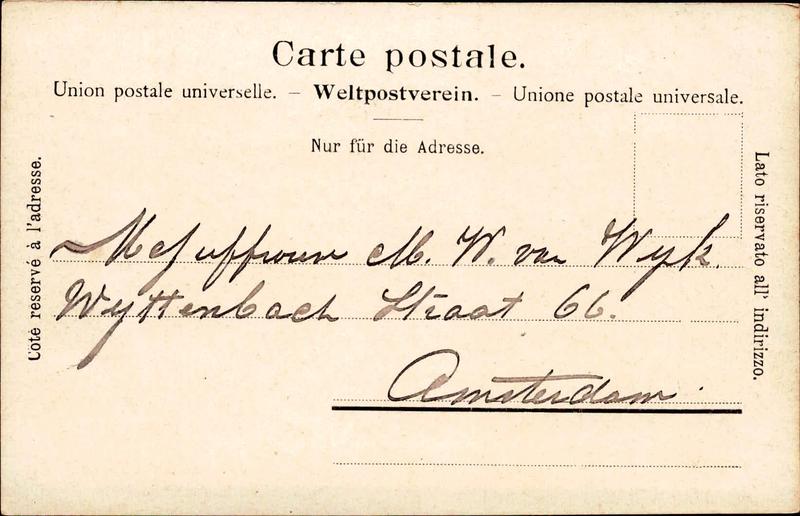 Carte postale.
Union postale universelle. – Weltpostverein. – Unione postale universale.
Nur für die Adresse.
Côté reservé à l'adresse.
Lato riservato all' indirizzo.
Mejuffrouw M. W. van Wyk.
Wyttenbach Straat 66.
Amsterdam.